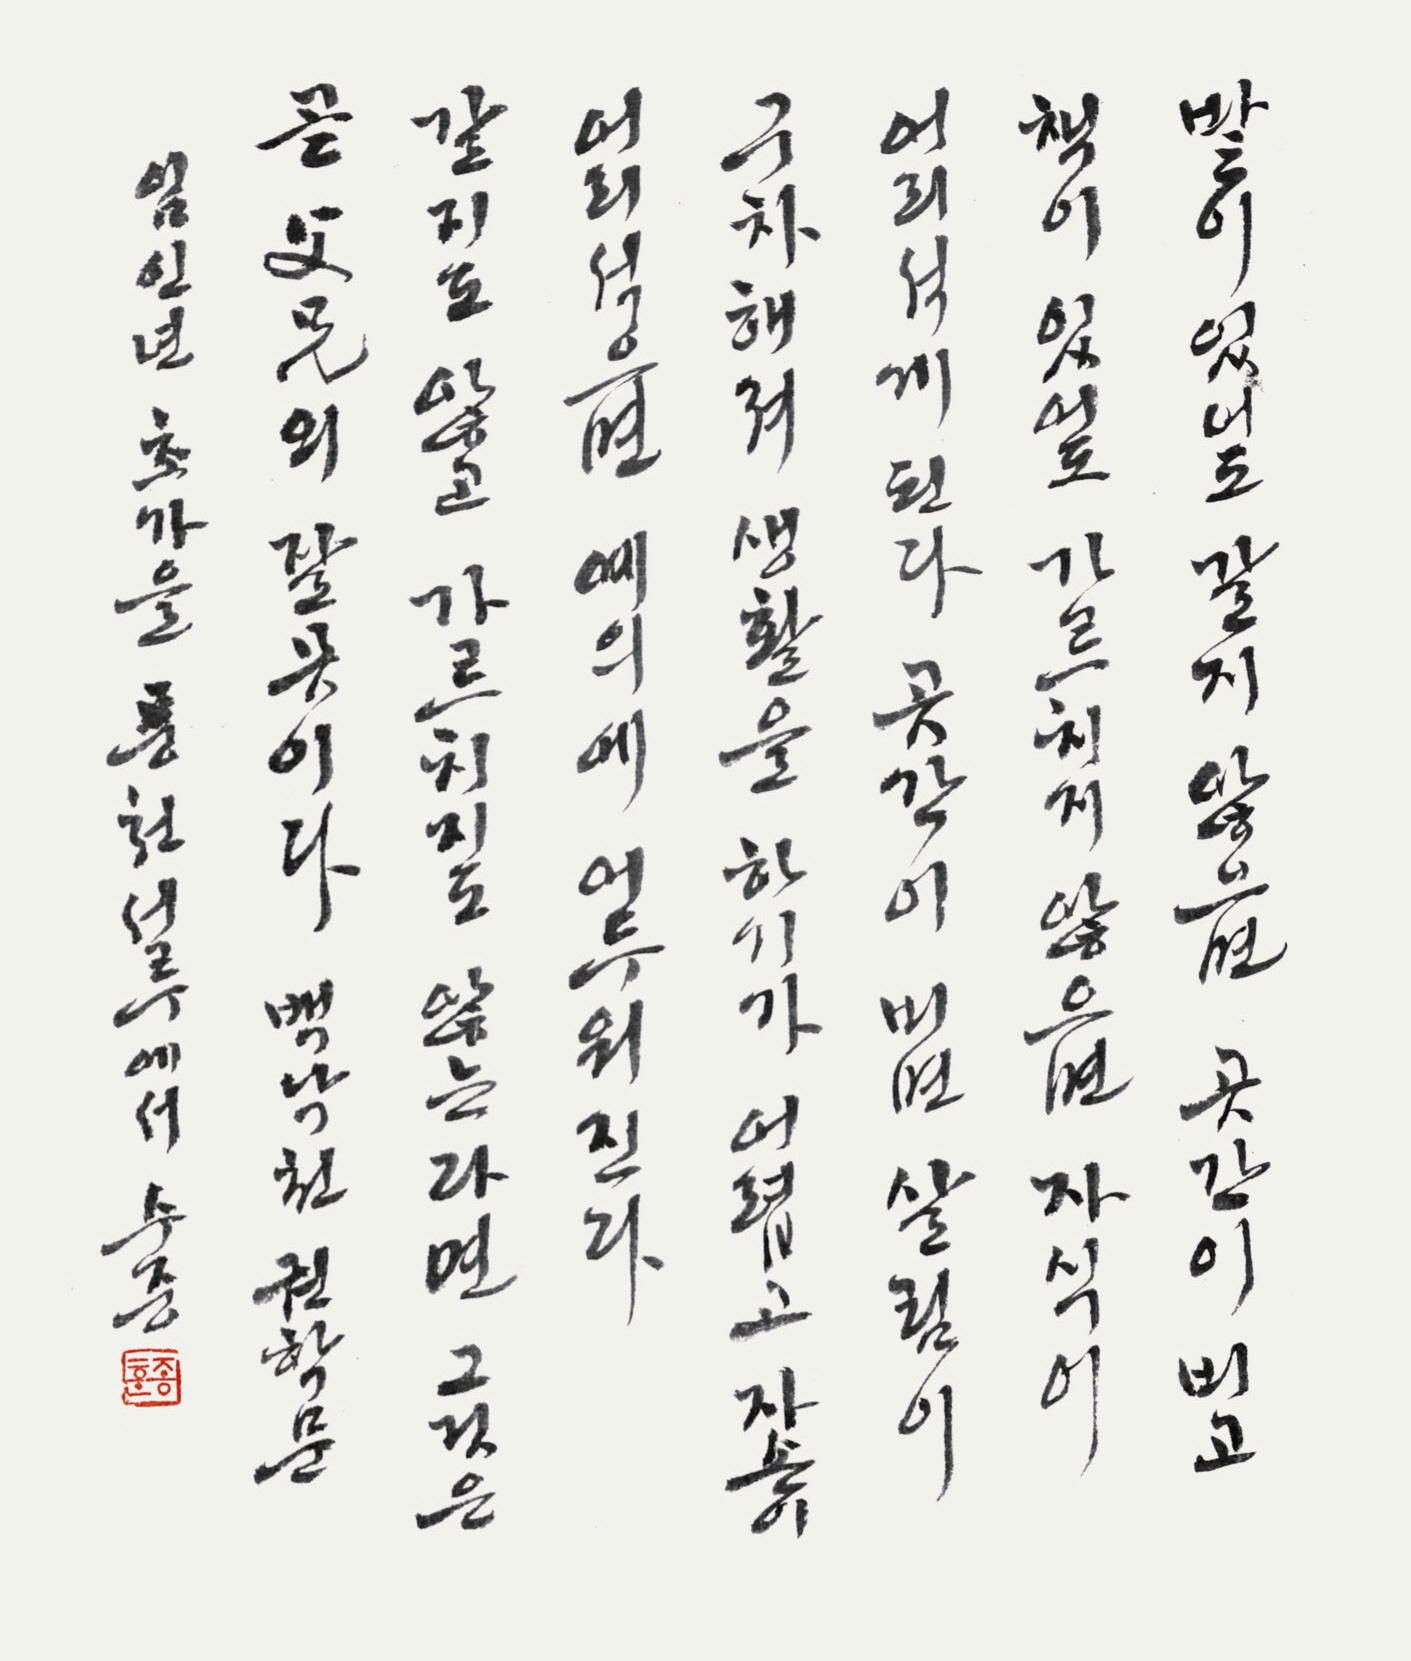 밭이 있서도 갈지 않으면 곳간이 비고
책이 있어도 가르치지 않으면 자식이
어리석게 된다 곳간이 비면 살림이
구차해져 생활을 하기가 어렵고 자손이
어리석으면 예의에 어두워진다
갈지도 않고 가르치지도 않는다면 그것은
곧 父兄의 잘못이다 백낙천 권학문
임인년 초가을 통천서루에서